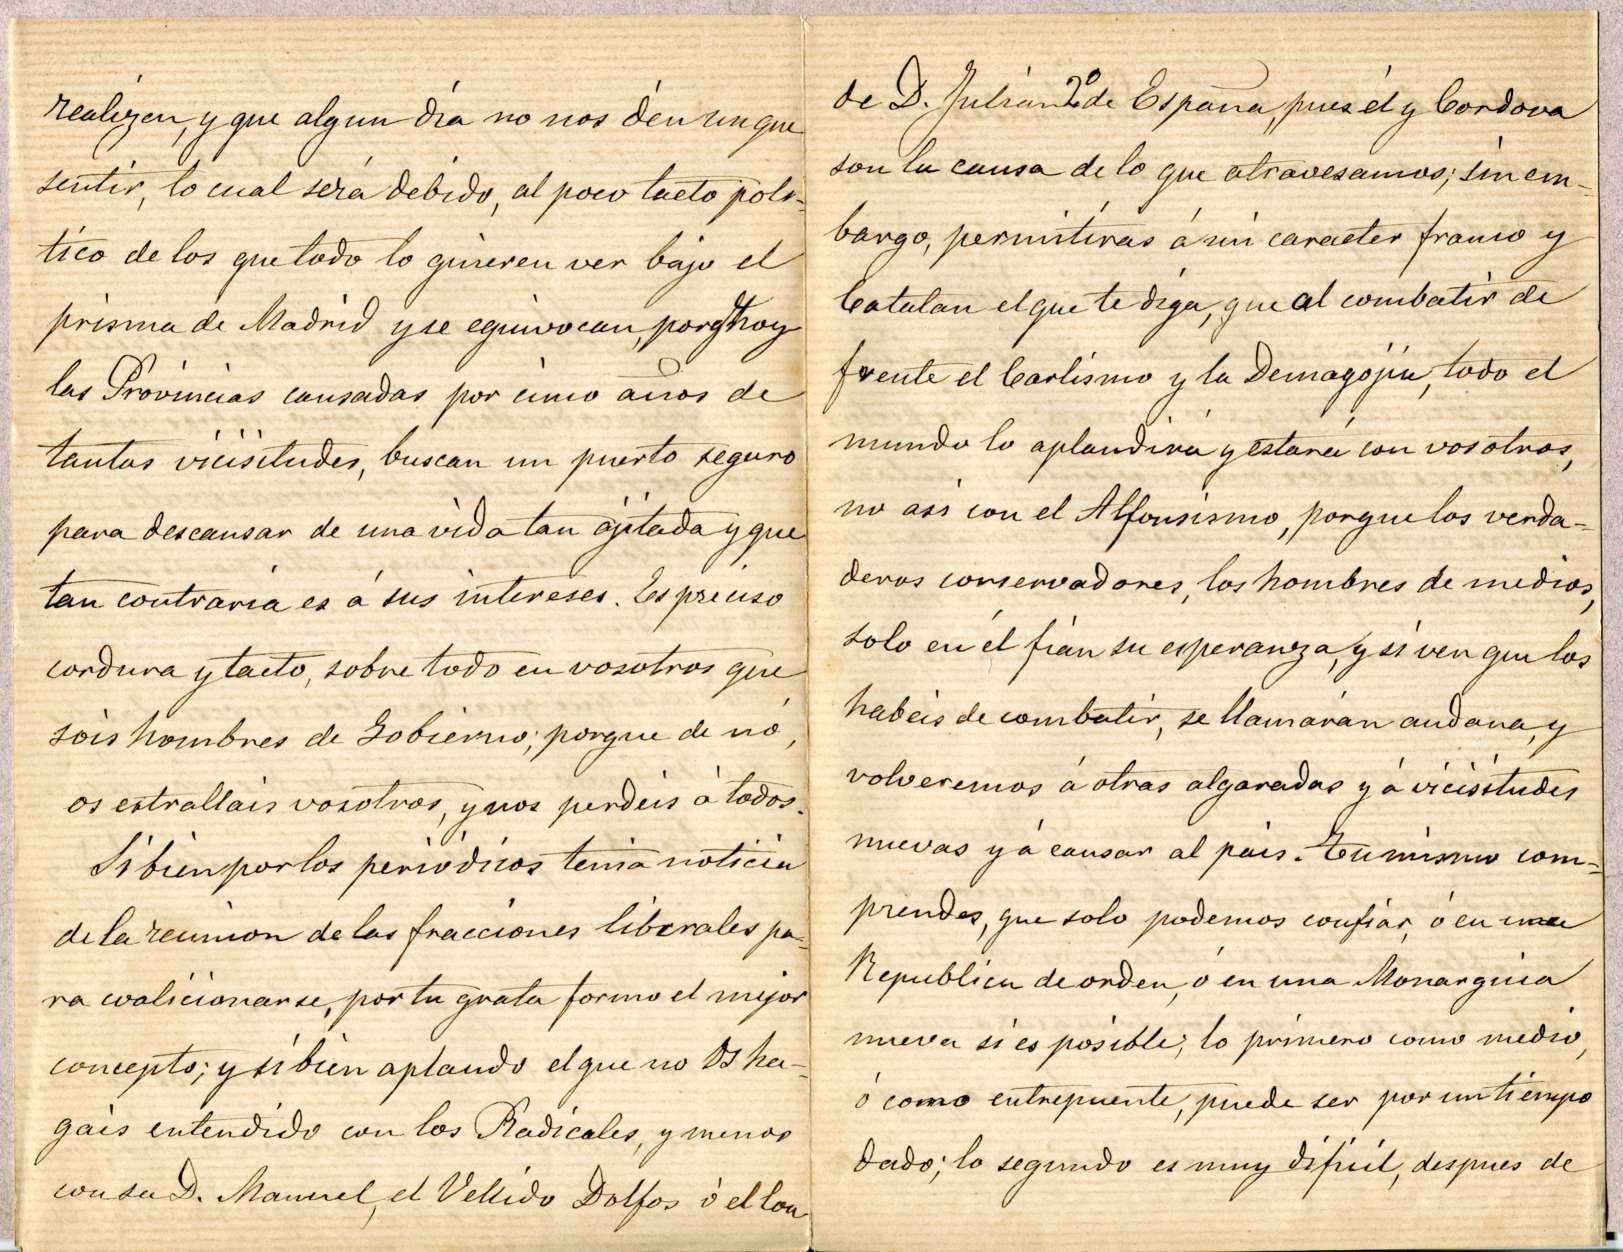 realizen, y que algun dia no nos dén un que
sentir, lo cual será debido, al poco tacto polí-
tico de los que todo lo quieren ver bajo el
prisma de Madrid y se equivocan, porq hoy
las Provincias cansadas por cinco años de
tantas vicisitudes, buscan un puerto seguro
para descansar de una vida tan ajitada y que
tan contraria es á sus intereses. Es preciso
cordura y tacto, sobre todo en vosotros que
sois hombres de Gobierno; porque de nó,
os estrallais vosotros, y nos perdeis á todos.
Si bien por los periódicos tenia noticia
de la reunion de las fracciones liberales pa-
ra coalicionarse, por tu grata formo el mejor
concepto; y si bien aplaudo el que no os ha-
gais entendido con los Radicales, y menos
con su D. Manuel, el Vellido Dolfos ó el Con
de D. Julián 2º de España, pues él y Cordova
son la causa de lo que atravesamos; sin em-
bargo, permitirás á mi caracter franco y
Catalan el que te diga, que al combatir de
frente el Carlismo y la Demagojia, todo el
mundo lo aplaudirá y estará con vosotros,
no asi con el Alfonsismo, porque los verda-
deros conservadores, los hombres de medios,
solo en él fian su esperanza, y si ven que los
habeis de combatir, se llamarán andana, y
volveremos á otras algaradas y á vicisitudes
nuevas y á causar al pais. Tu mismo com-
prendes, que solo podemos confiar, ó en una
Republica de orden, ó en una Monarquia
nueva si es posible; lo primero como medio,
ó como entrepuente, puede ser por un tiempo
dado; lo segundo es muy dificil, despues de